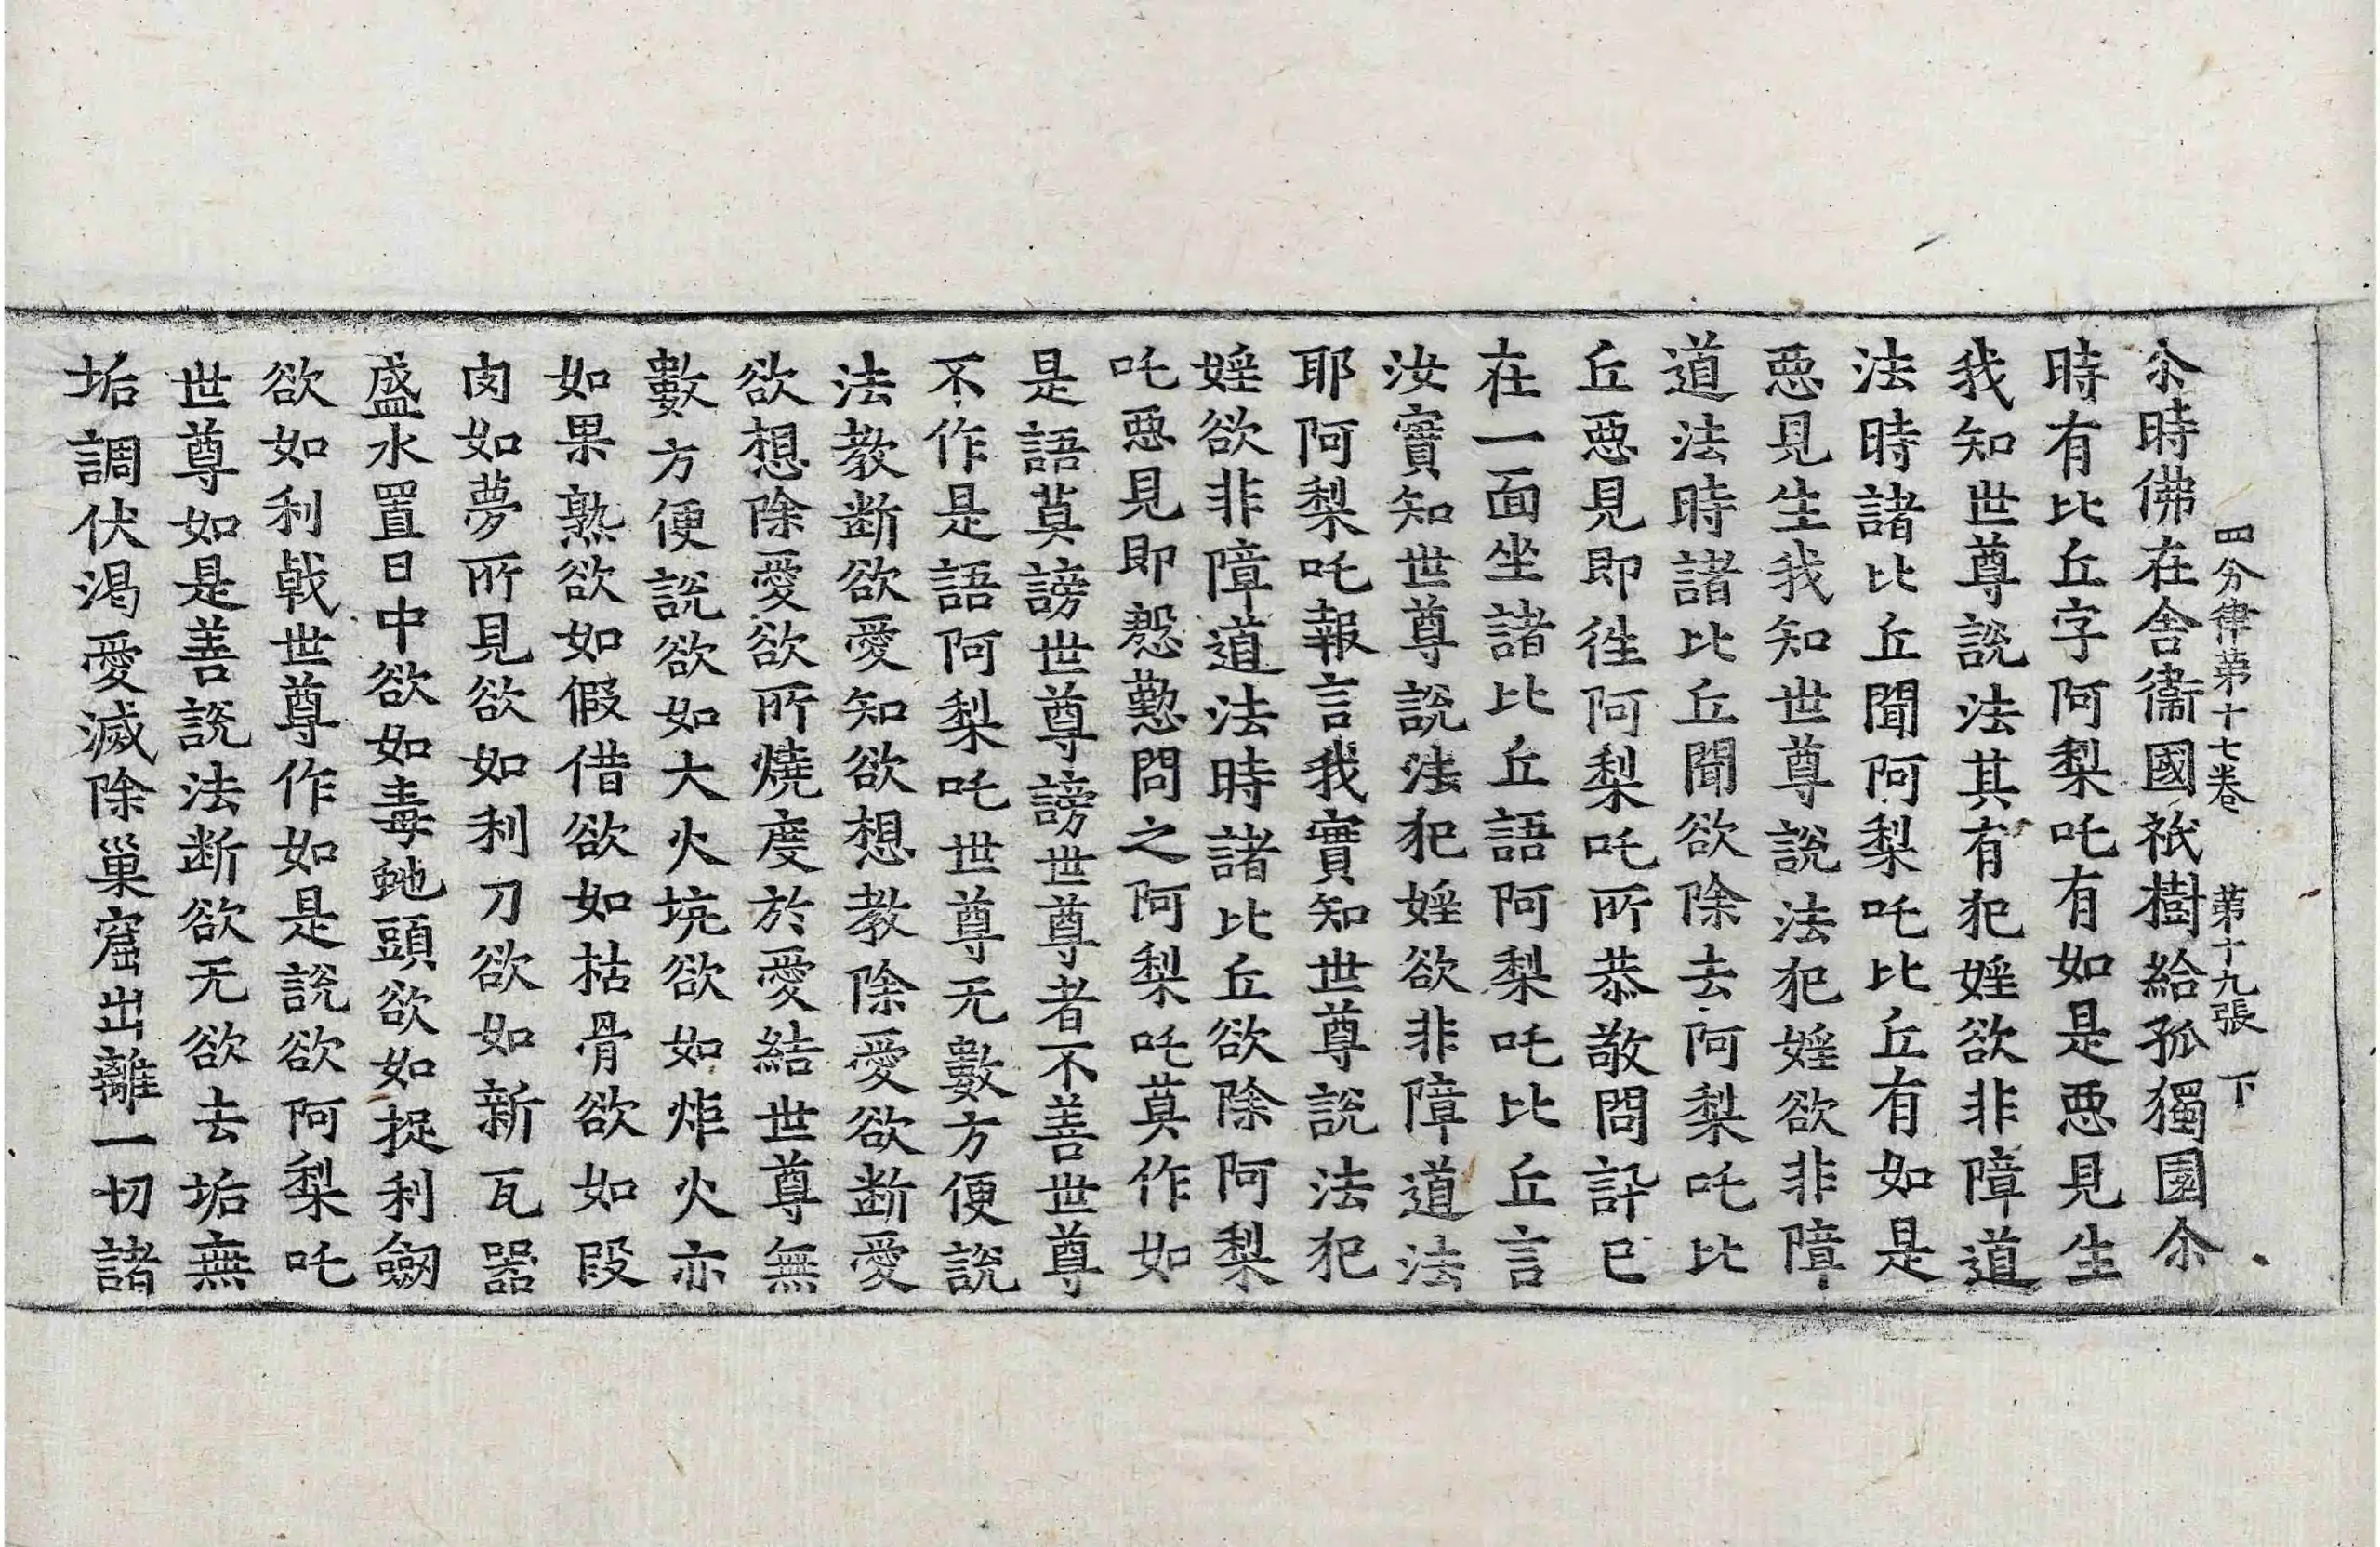 四分律苐十七卷 苐十九張 下
尒時佛在舎衞國祇樹給孤獨園尒
時有比丘字阿梨吒有如是悪見生
我知世尊說法其有犯婬欲非障道
法時諸比丘聞阿梨吒比丘有如是
悪見生我知世尊說法犯婬欲非障
道法時諸比丘聞欲除去阿梨吒比
丘悪見即徃阿梨吒所恭敬問訊已
在一面坐諸比丘語阿梨吒比丘言
汝實知世尊說法犯婬欲非障道法
耶阿梨吒報言我實知世尊說法犯
婬欲非障道法時諸比丘欲除阿梨
吒悪見即慇懃問之阿梨吒莫作如
是語莫謗世尊謗世尊者不善世尊
不作是語阿梨吒世尊无數方便說
法教断欲愛知欲想教除愛欲断愛
欲想除愛欲所燒度於愛結世尊無
數方便說欲如大火坑欲如炬火亦
如果熟欲如假借欲如枯骨欲如段
肉如夢所見欲如利刀欲如新瓦器
盛水置日中欲如毒虵頭欲如捉利劒
欲如利戟世尊作如是說欲阿梨吒
世尊如是善說法断欲无欲去垢無
垢調伏渴愛滅除巢窟出離一切諸